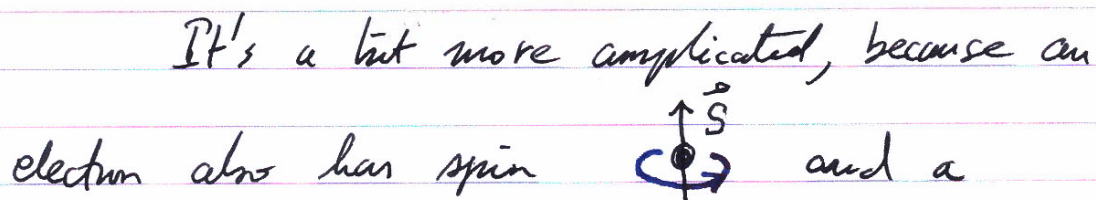 It's a bit more complicated, because an
electron also has spin S⃗ and a